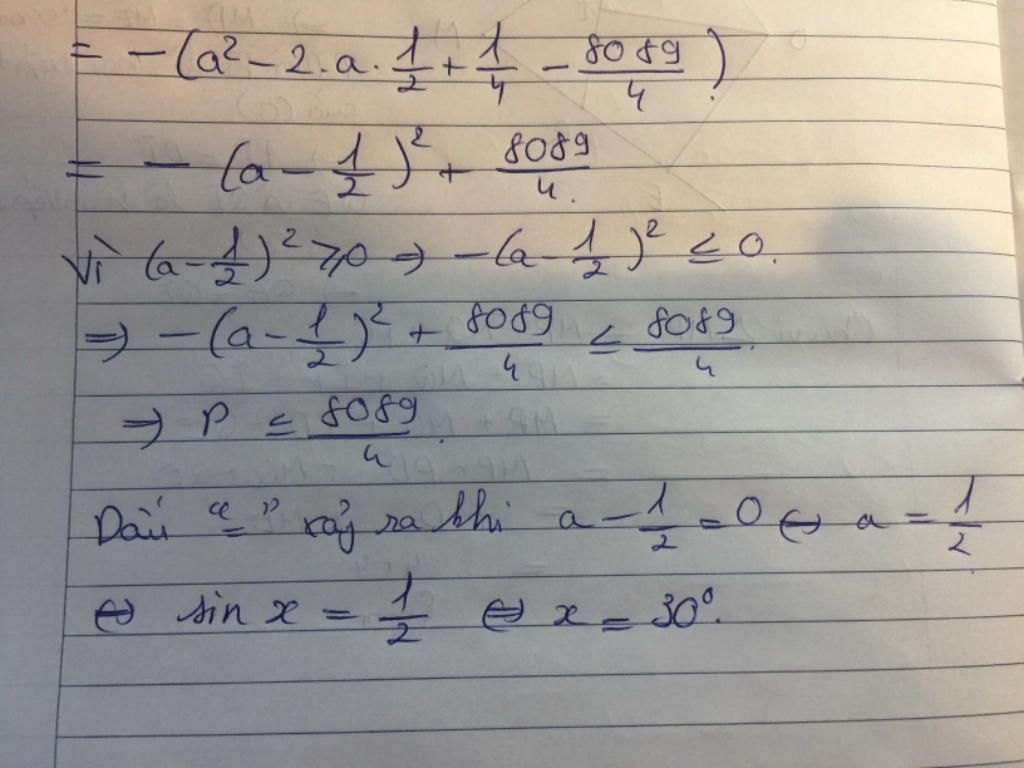 = - (a² - 2.a.1/2 + 1/4 - 8089/4)
= - (a - 1/2)² + 8089/4.
Vì (a - 1/2)² ≥ 0 ⇒ - (a - 1/2)² ≤ 0.
⇒ - (a - 1/2)² + 8089/4 ≤ 8089/4.
⇒ P ≤ 8089/4.
Dấu "=" xảy ra khi a - 1/2 = 0 ⇔ a = 1/2
⇔ sin x = 1/2 ⇔ x = 30⁰.